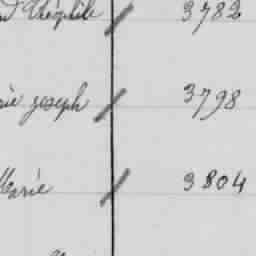 d Théophile 3782
rie joseph 3798
Marie 3804